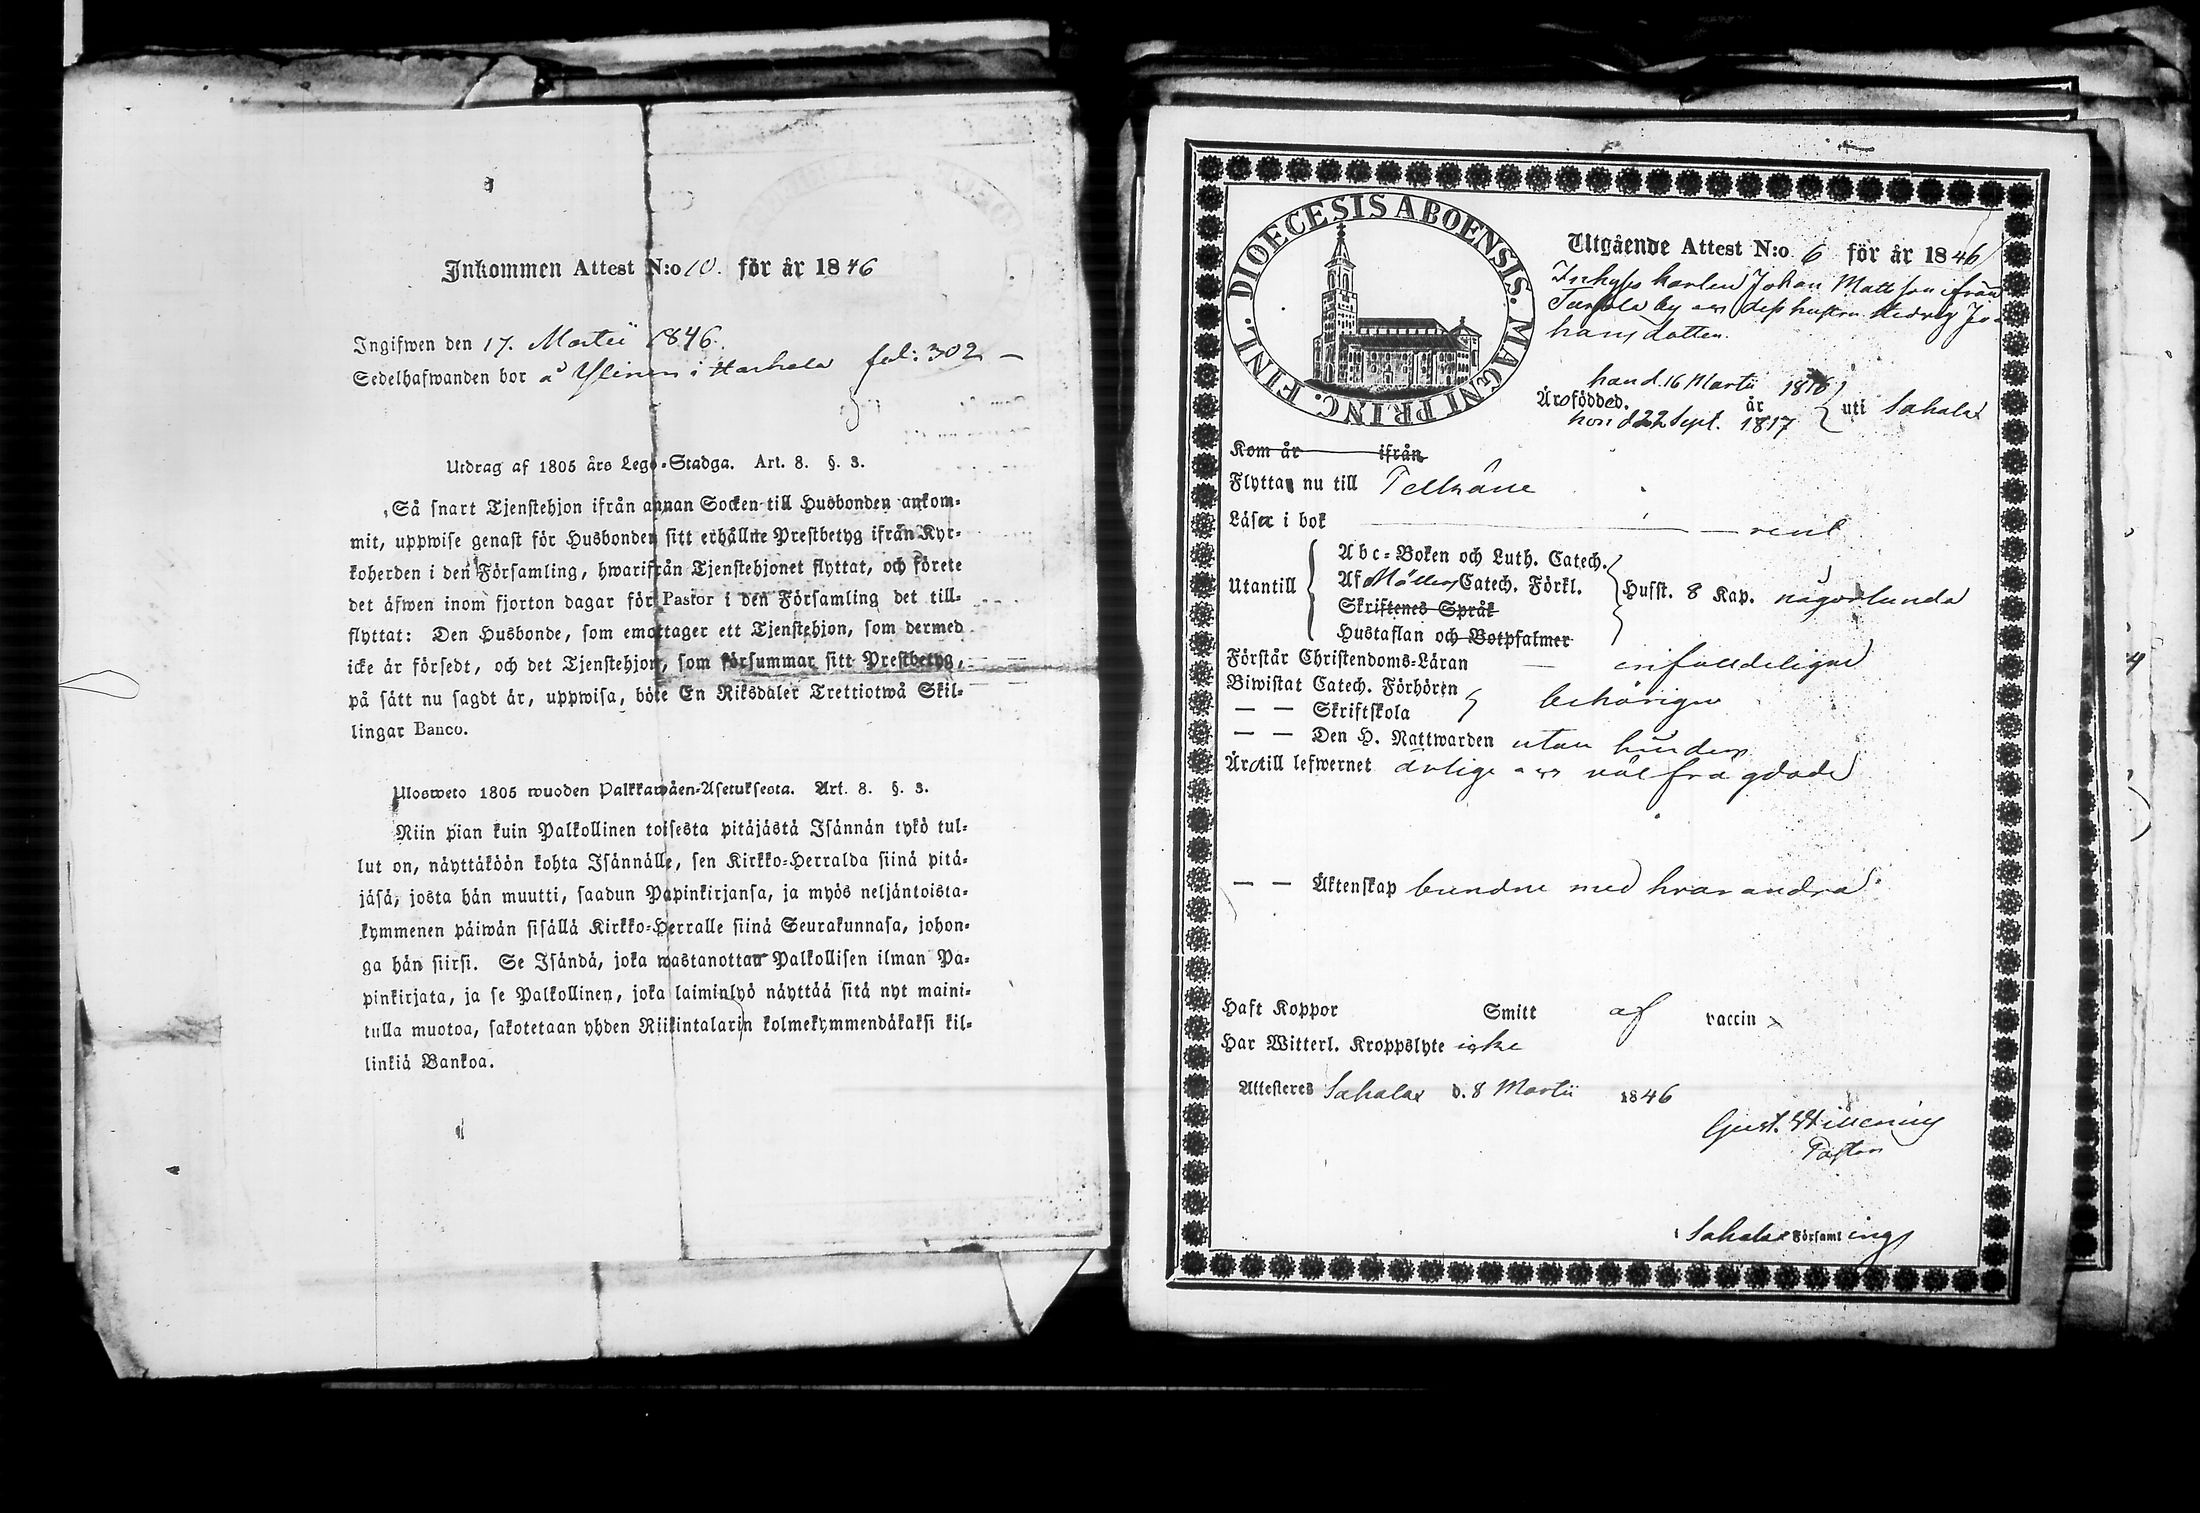 Inkommen Attest N:o 10. för år 1846
Ingifwen den 17. Martii 1846.
Sedelhafwanden bor å Ylinen i Harhala fol: 302
Utdrag af 1805 års Lego-Stadga. Art. 8. §. 3.
Så snart Tjenstehjon ifrån annan Socken till Husbonden ankom-
mit, uppwise genast för Husbonden sitt erhållne Prestbetyg ifrån Kyr-
koherden i den Församling, hwarifrån Tjenstehjonet flyttat, och förete
det äfwen inom fjorton dagar för Pastor i den Församling det till-
flyttat: Den Husbonde, som emottager ett Tjenstehjon, som dermed
icke är försedt, och det Tjenstehjon, som försummar sitt Prestbetyg,
på sätt nu sagdt är, uppwisa, böte En Riksdaler Trettiotwå Skil-
lingar Banco.
Ulosweto 1805 wuoden Palkkawäen-Asetuksesta. Art. 8. §. 3.
Niin pian kuin Palkollinen toisesta pitäjästä Isännän tykö tul-
lut on, näyttäköön kohta Isännälle, sen Kirkko-Herralda siinä pitä-
jäsä, josta hän muutti, saadun Papinkirjansa, ja myös neljäntoista-
kymmenen päiwän sisällä Kirkko-Herralle siinä Seurakunnasa, johon-
ga hän siirsi. Se Isändä, joka wastanottaa Palkollisen ilman Pa-
pinkirjata, ja se Palkollinen, joka laiminlyö näyttää sitä nyt maini-
tulla muotoa, sakotetaan yhden Riikintalarin kolmekymmendäkaksi kil-
linkiä Bankoa.
DIOECESIS ABOENSIS. MAGNI PRINC. FINL.
Utgående Attest N:o 6 för år 1846
Inhyses karlen Johan Mattsson ifrån
by och dess hustru Hedvig Jo-
hansdotter.
han d. 16 Martii 1816
Äro födde d. år uti Sahalax
hon d 22 Sept. 1817
Kom år ifrån
Flytta nu till Pelkäne
Läsa i bok rent
Abc-Boken och Luth. Catech.
Utantill Af Möllers Catech. Förkl. Husst. 8 Kap. någorlunda
Skriftenes Språk
Hustaflan och Botpsalmer
Förstår Christendoms-Läran enfaldeligen
Biwistat Catech. Förhören
— — Skriftskola behörigen
— — Den H. Nattwarden utan hinder
Äro till lefwernet ärlige och välfrägdade
— — Äktenskap bundne med hvarandra
Haft Koppor Smitt af vaccin
Har Witterl. Kroppslyte icke
Attesteres Sahalax d. 8 Martii 1846
Gust.
Pastor
i Sahalax Församlings